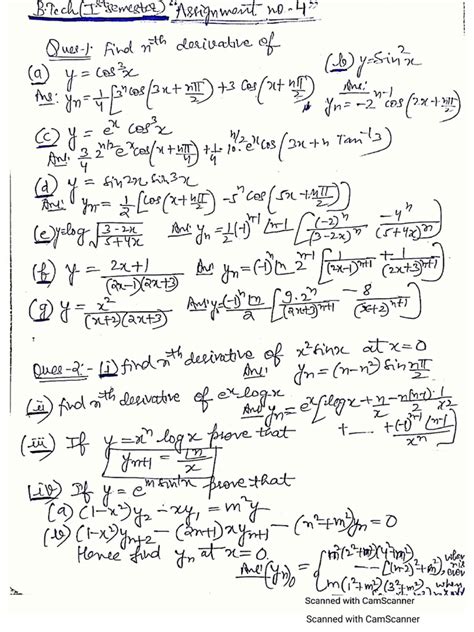 B.Tech (Ist semester) "Assignment no-4"
Ques-1. Find nth derivative of
(a) y = cos³x (b) y = sin²x
Ans: yn = 1/4 [3^n cos(3x + nπ/2) + 3 cos(x + nπ/2)] Ans: yn = -2^(n-1) cos(2x + nπ/2)
(c) y = e^x cos³x
Ans: 3/4 2^(n/2) e^x cos(x + nπ/4) + 1/4 · 10^(n/2) e^x cos(3x + n Tan^-1 3)
(d) y = sin2x sin3x
Ans: yn = 1/2 [cos(x + nπ/2) - 5^n cos(5x + nπ/2)]
(e) y = log √((3-2x)/(5+4x)) Ans: yn = 1/2 (-1)^(n-1) |n-1 [(-2)^n/(3-2x)^n - 4^n/(5+4x)^n]
(f) y = (2x+1)/((2x-1)(2x+3)) Ans: yn = (-1)^n |n 2^(n-1) [1/(2x-1)^(n+1) + 1/(2x+3)^(n+1)]
(g) y = x²/((x+2)(2x+3)) Ans: y = (-1)^n |n/2 [9·2^n/(2x+3)^(n+1) - 8/(x+2)^(n+1)]
Ques-2:- (i) find nth derivative of x² sinx at x=0
yn = (n-n²) sin nπ/2
(ii) find nth derivative of e^x log x
Ans yn = e^x [log x + n/x - n(n-1)/2 · 1/x²
+ ---- + (-1)^(n-1) |n-1/x^n]
(iii) If y = x^n log x prove that
y_(n+1) = |n/x
(iv) If y = e^(m sin^-1 x) prove that
(a) (1-x²)y2 - xy1 = m²y
(b) (1-x²)y_(n+2) - (2n+1)xy_(n+1) - (n²+m²)yn = 0
Hence find yn at x=0.
Ans: (yn)0 = { m²(2²+m²)(4²+m²)
---- [(n-2)²+m²], when n is even
m(1²+m²)(3²+m²) when
Scanned with CamScanner
Scanned with CamScanner